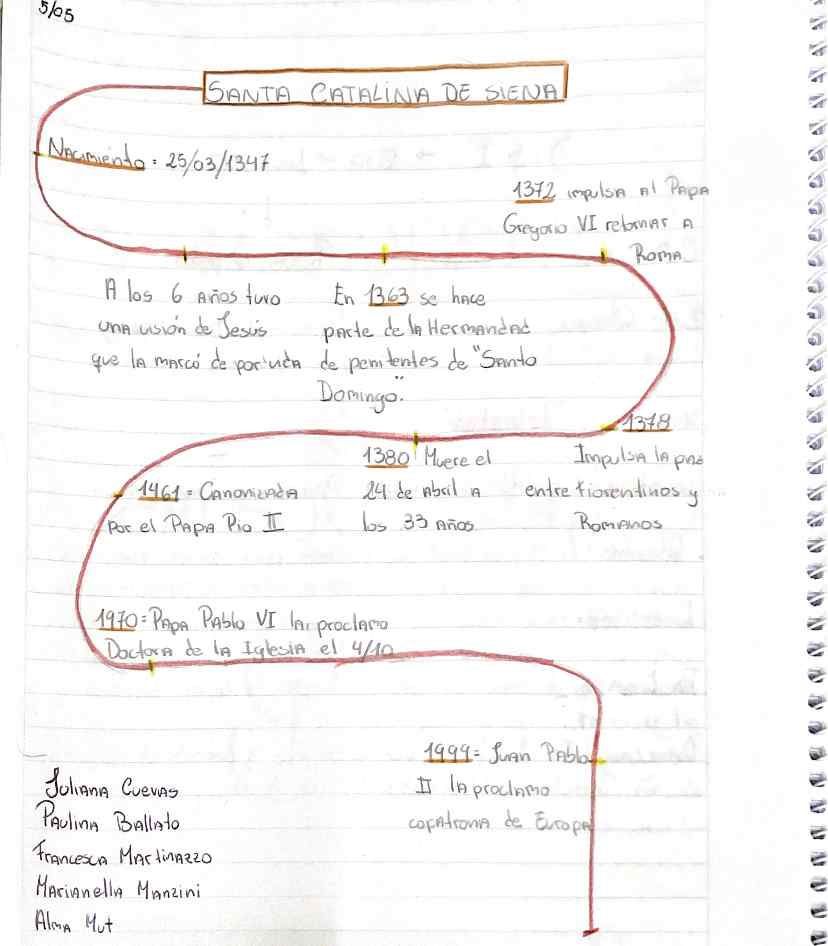 5/05
SANTA CATALINA DE SIENA
Nacimiento: 25/03/1347
1372 impulsa al Papa
Gregorio VI retornar a
Roma
A los 6 años tuvo
una visión de Jesús
que la marcó de por vida
En 1363 se hace
parte de la Hermandad
de penitentes de "Santo
Domingo".
1378
Impulsa la paz
entre fiorentinos y
Romanos
1380 Muere el
24 de abril a
los 33 años
1461= Canonizada
por el Papa Pio II
1970= Papa Pablo VI la proclamo
Doctora de la Iglesia el 4/10
1999= Juan Pablo
II la proclamo
copatrona de Europa
Juliana Cuevas
Paulina Ballato
Francesca Martinazzo
Marianella Manzini
Alma Mut